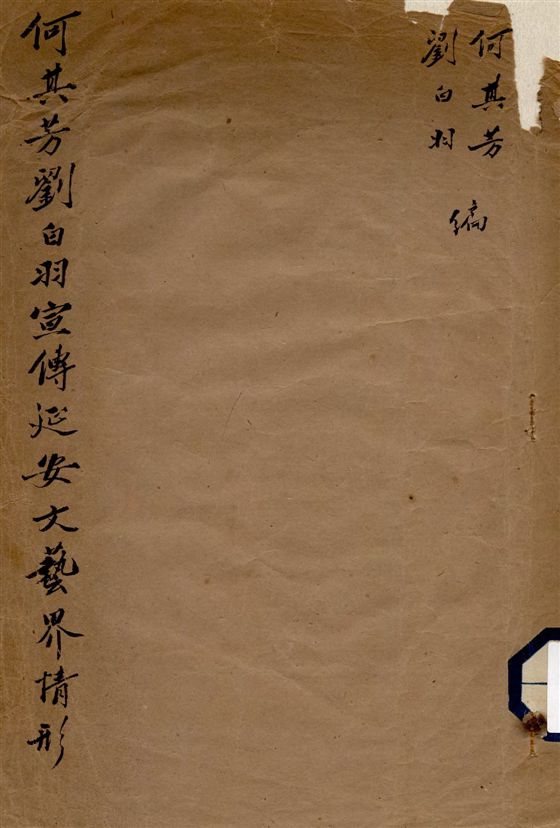 何其芳
劉白羽
編
何其芳劉白羽宣傳延安文藝界情形